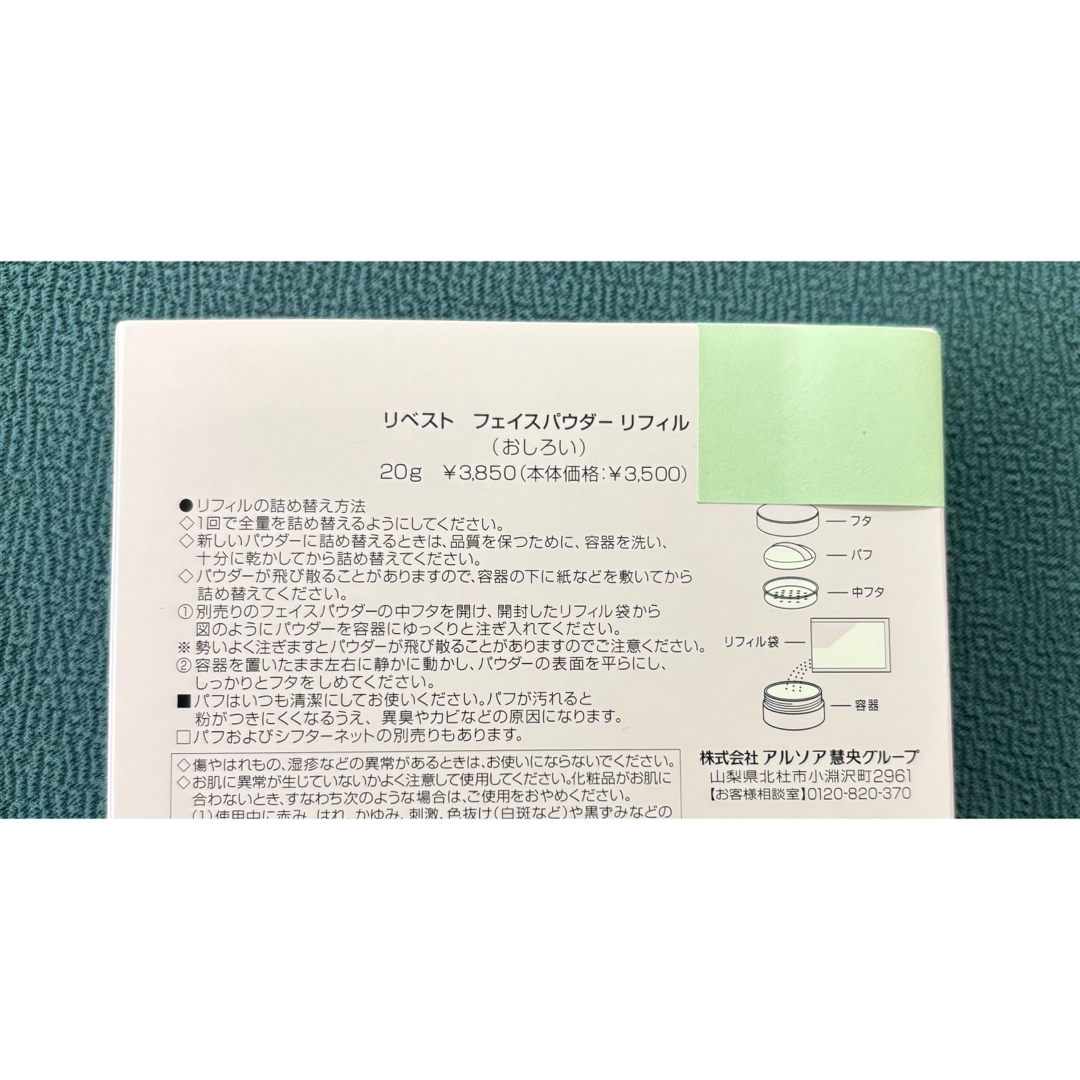 リベスト フェイスパウダー リフィル
（おしろい）
20g ¥3,850（本体価格:¥3,500）
●リフィルの詰め替え方法
◇1回で全量を詰め替えるようにしてください。
◇新しいパウダーに詰め替えるときは、品質を保つために、容器を洗い、
十分に乾かしてから詰め替えてください。
◇パウダーが飛び散ることがありますので、容器の下に紙などを敷いてから
詰め替えてください。
①別売りのフェイスパウダーの中フタを開け、開封したリフィル袋から
図のようにパウダーを容器にゆっくりと注ぎ入れてください。
※勢いよく注ぎますとパウダーが飛び散ることがありますのでご注意ください。
②容器を置いたまま左右に静かに動かし、パウダーの表面を平らにし、
しっかりとフタをしめてください。
■パフはいつも清潔にしてお使いください。パフが汚れると
粉がつきにくくなるうえ、異臭やカビなどの原因になります。
□パフおよびシフターネットの別売りもあります。
◇傷やはれもの、湿疹などの異常があるときは、お使いにならないでください。
◇お肌に異常が生じていないかよく注意して使用してください。化粧品がお肌に
合わないとき、すなわち次のような場合は、ご使用をおやめください。
(1)使用中に赤み、はれ、かゆみ、刺激、色抜け(白斑など)や黒ずみなどの
フタ
パフ
中フタ
リフィル袋
容器
株式会社 アルソア慧央グループ
山梨県北杜市小淵沢町2961
【お客様相談室】0120-820-370